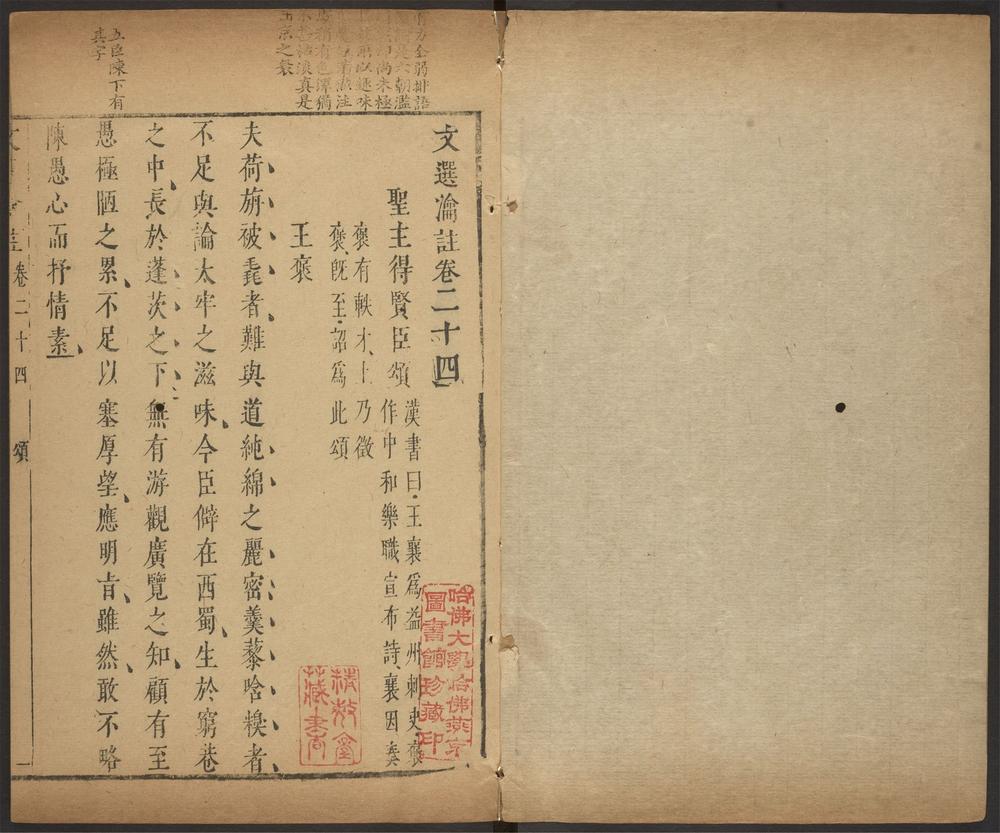 文選瀹註卷二十四
聖主得賢臣頌
漢書曰王襄爲益州刺史襃
作中和樂職宣布詩襄因奏
襃有軼才上乃徵
襃旣至詔爲此頌
王襃
夫荷旃被毳者難與道純綿之麗密羹藜唅糗者
不足與論太牢之滋味今臣僻在西蜀生於窮巷
之中長於蓬茨之下無有游觀廣覽之知顧有至
愚極陋之累不足以塞厚望應明旨雖然敢不略
陳愚心而抒情素
卷二十四
頌
一
五臣陳下有
真字
哈佛大學哈佛燕京
圖書館珍藏印
藏書